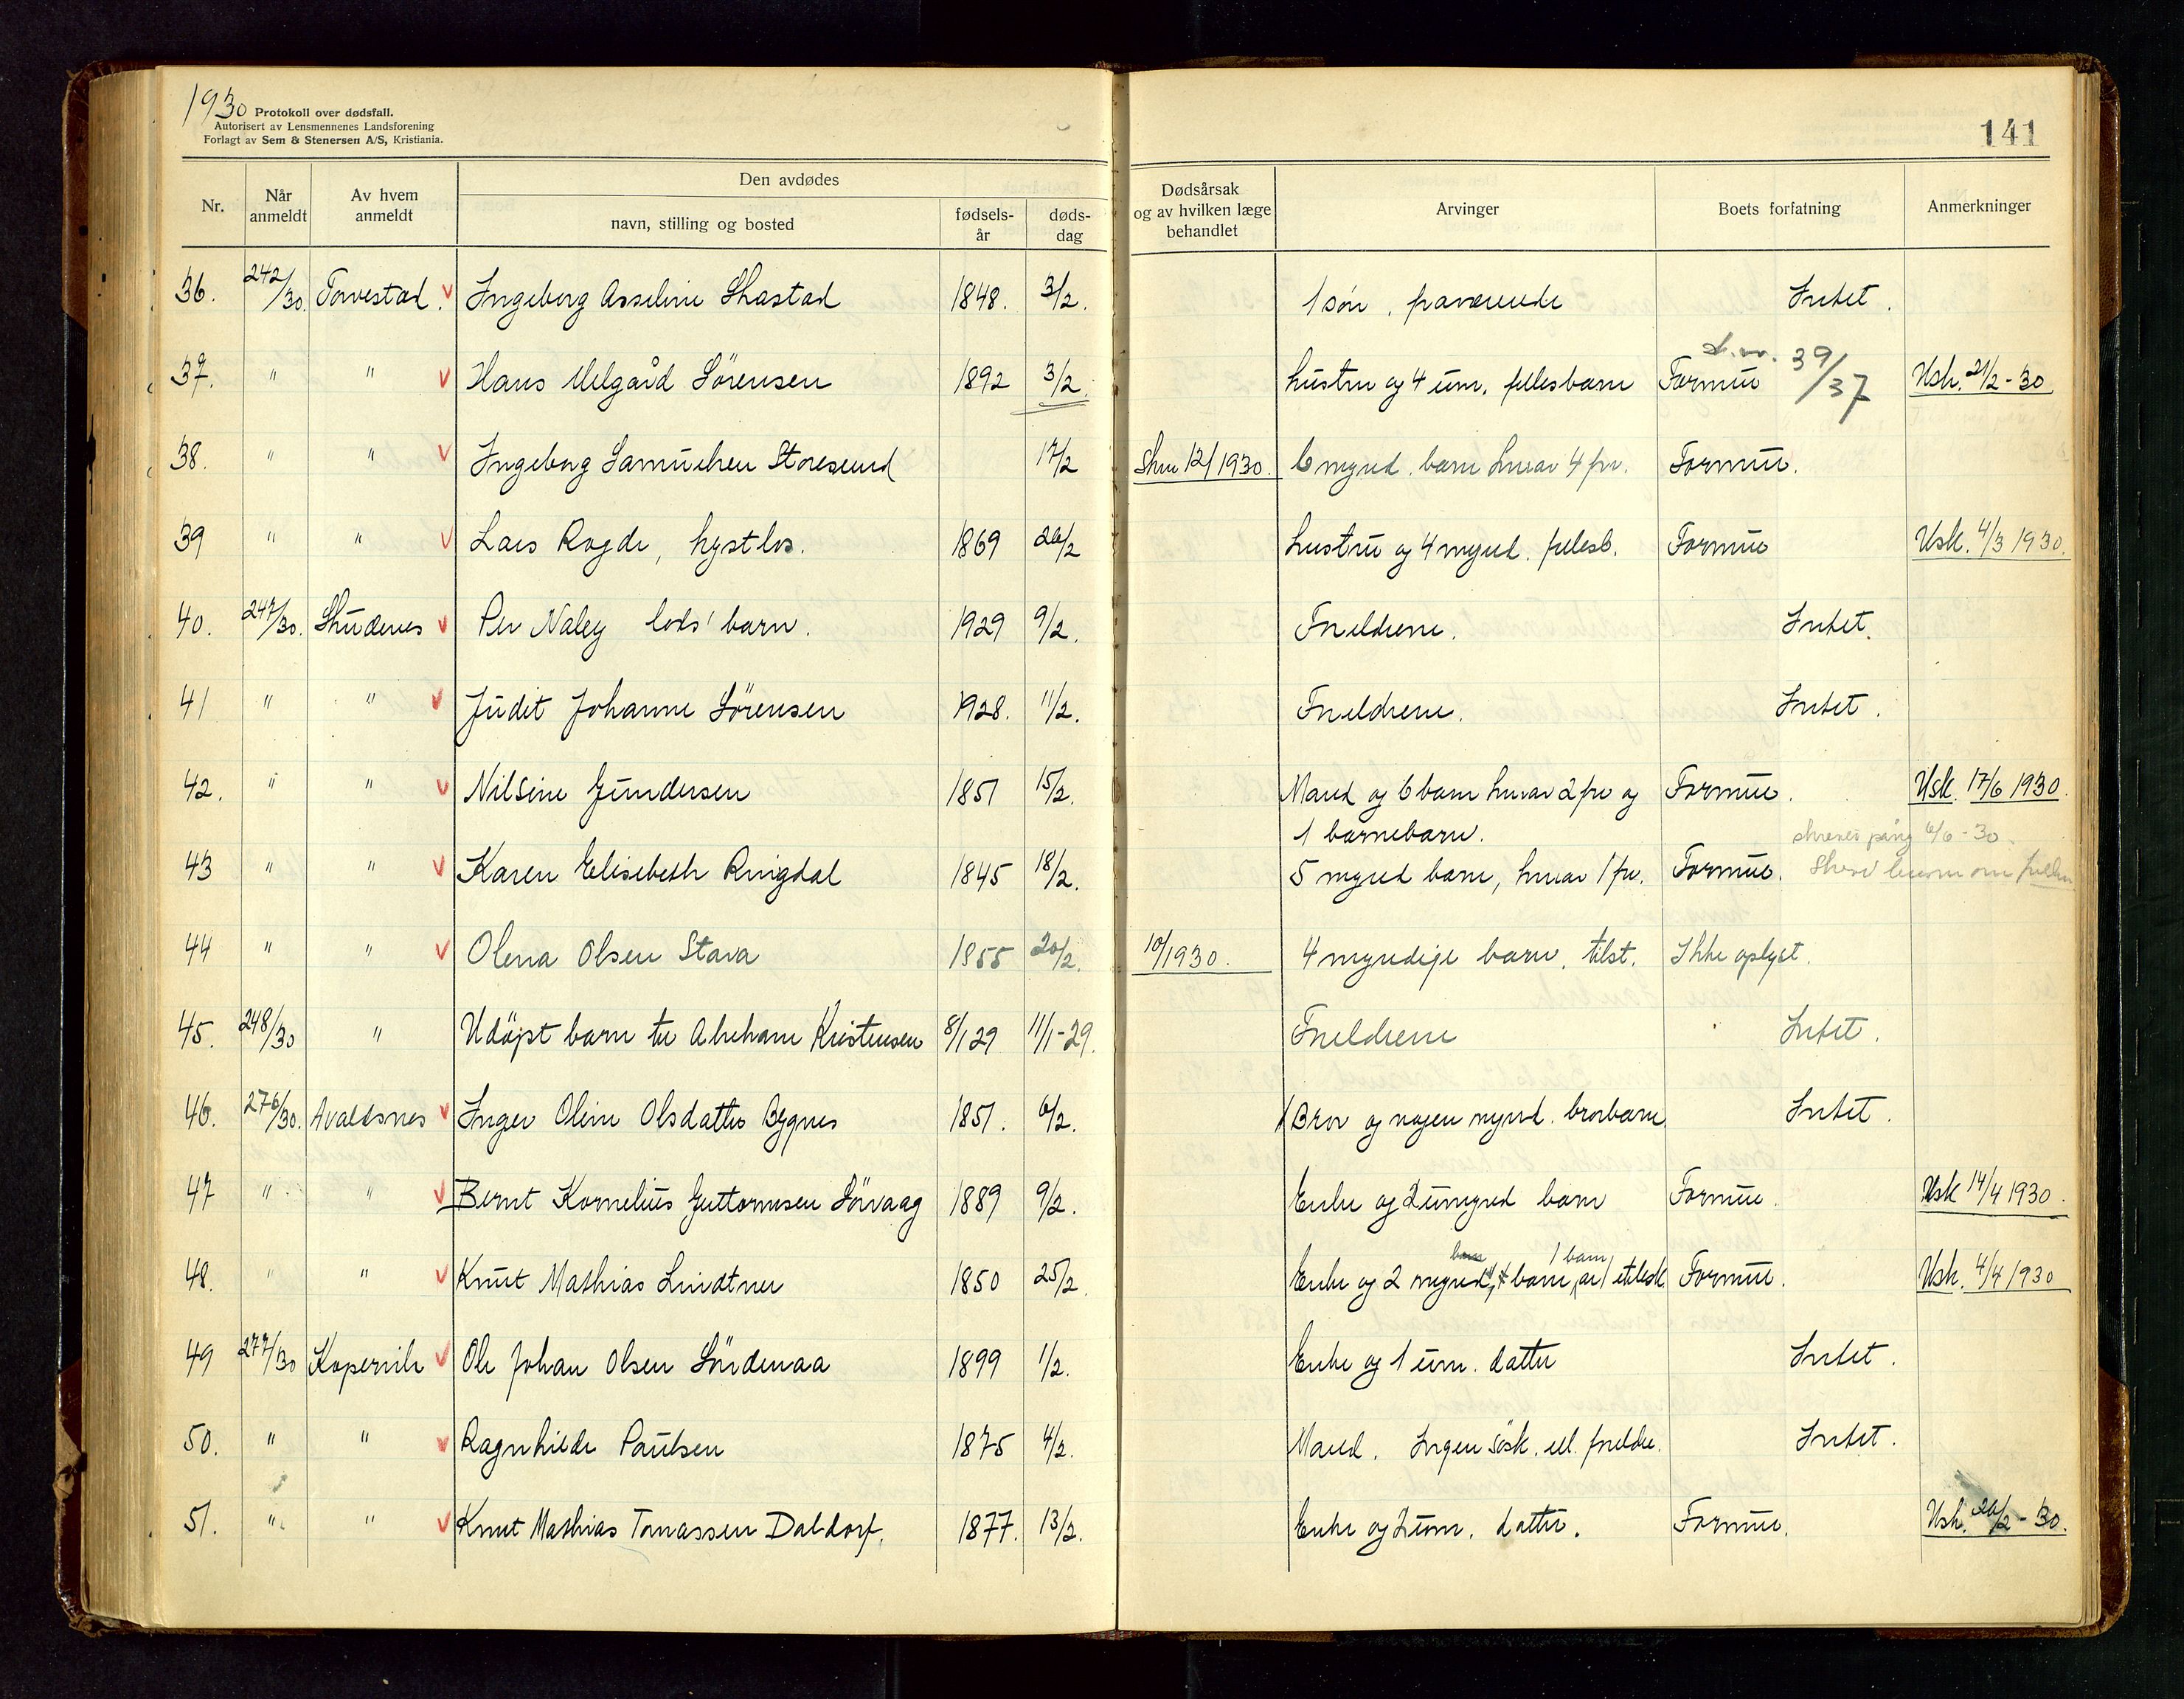 1930 Protokoll over dødsfall.
Autorisert av Lensmennenes Landsforening
Forlagt av Sem & Stenersen A/S, Kristiania.
141
Nr. Når anmeldt Av hvem anmeldt Den avdødes navn, stilling og bosted fødsels-år døds-dag Dødsårsak og av hvilken læge behandlet Arvinger Boets forfatning Anmerkninger
36. 242/30. Torvestad. Ingeborg Asseline Skastad 1848. 3/2. 1 søn, fraværende Intet.
37. " " Hans Melgård Sörensen 1892 3/2. hustru og 4 um. fellesbarn Formue 39/37 Usk. 21/2-30
38. " " Ingeborg Samuelsen Storesund 17/2 Skm 12/1930. 6 mynd. barn hvorav 4 frv. Formue.
39 " " Lars Rogde, kystlos. 1869 26/2 hustru og 4 mynd. fellesb. Formue Usk. 4/3 1930.
40. 247/30. Skudenes Per Naley lods' barn. 1929 9/2. Foreldrene. Intet.
41 " " Judit Johanne Sörensen 1928. 11/2. Foreldrene. Intet.
42. " " Nilsine Gundersen 1851 15/2. Mand og 6 barn hvorav 2 frv og Formue. Usk. 17/6 1930.
1 barnebarn. 6/6-30.
43 " " Karen Elisebeth Ringdal 1845 18/2. 5 mynd barn, hvorav 1 frv. Formue.
44 " " Olena Olsen Stava 1855 20/2. 10/1930. 4 myndige barn, tilst. Ikke oplyst.
45. 248/30 " Udöpt barn til Abraham Kristensen 8/1 29 11/1-29. Foreldrene Intet.
46. 276/30. Avaldsnes Inger Oline Olsdatter Bygnes 1851. 6/2. 1 Bror og nogen mynd. brorbarn. Intet.
47 " " Bernt Kornelius Guttormsen Sörvaag 1889 9/2. Enke og 2 umynd barn Formue. Usk 14/4 1930.
48. " " Knut Mathias Lindtner 1850 25/2. Enke og 2 mynd. barn, 1 barn Formue. Usk. 4/4 1930
49 277/30 Kopervik Ole Johan Olsen Söndenaa 1899 1/2. Enke og 1 um. datter Intet.
50. " " Ragnhilde Paulsen 1875 4/2. Mand. Ingen søsk. ell. foreldre. Intet.
51. " " Knut Mathias Tomassen Daldorf. 1877. 13/2. Enke og 2 um. datter. Formue. Usk. 26/2-30.